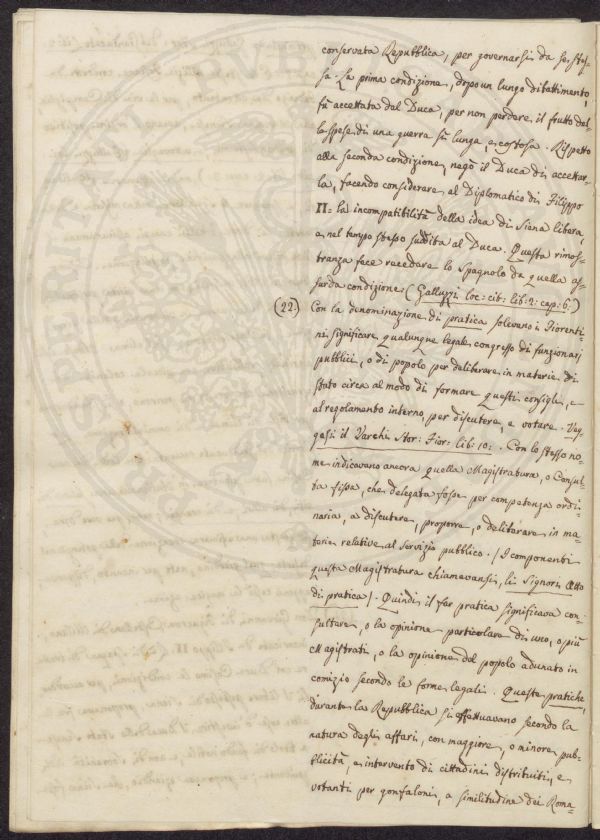 conservata Repubblica, per governarsi da se stes-
sa. La prima condizione, dopo un lungo dibattimento,
fù accettata dal Duca, per non perdere il frutto del-
la spese di una guerra sì lunga, e costosa. Rispetto
alla seconda condizione, negò il Duca di accettar-
la, facendo considerare al Diplomatico di Filippo
II= la incompatibilità della idea di Siena libera,
e nel tempo stesso suddita al Duca. Questa rimos-
tranza fece recedere lo Spagnolo da quella as-
surda condizione. (Galluzzi loc: cit: lib: 2: cap: 6.)
(22.) Con la denominazione di pratica solevano i Fiorenti-
ni significare qualunque legale congresso di funzionarj
pubblici, o di popolo per deliberare in materie di
stato circa al modo di formare questi consigli, e
al regolamento interno, per discutere, e votare. Veg-
gasi il Varchi Stor: Fior: lib: 10:. Con lo stesso no-
me indicavano ancora quella Magistratura, o Consul-
ta fissa, che delegata fosse per competenza ordi-
naria, a discutere, proporre, o deliberare in ma-
terie relative al servizio pubblico. / I componenti
questa Magistratura chiamavansi, li Signori Otto
di pratica /. Quindi il far pratica significava con-
sultare, o la opinione particolare di uno, o più
Magistrati, o la opinione del popolo adunato in
comizio secondo le forme legali. Queste pratiche,
durante la Repubblica si effettuavano secondo la
natura degli affari, con maggiore, o minore pub-
blicità, e intervento di cittadini distribuiti, e
votanti per gonfaloni, a similitudine dei Roma-
PROSPERITATI PVB